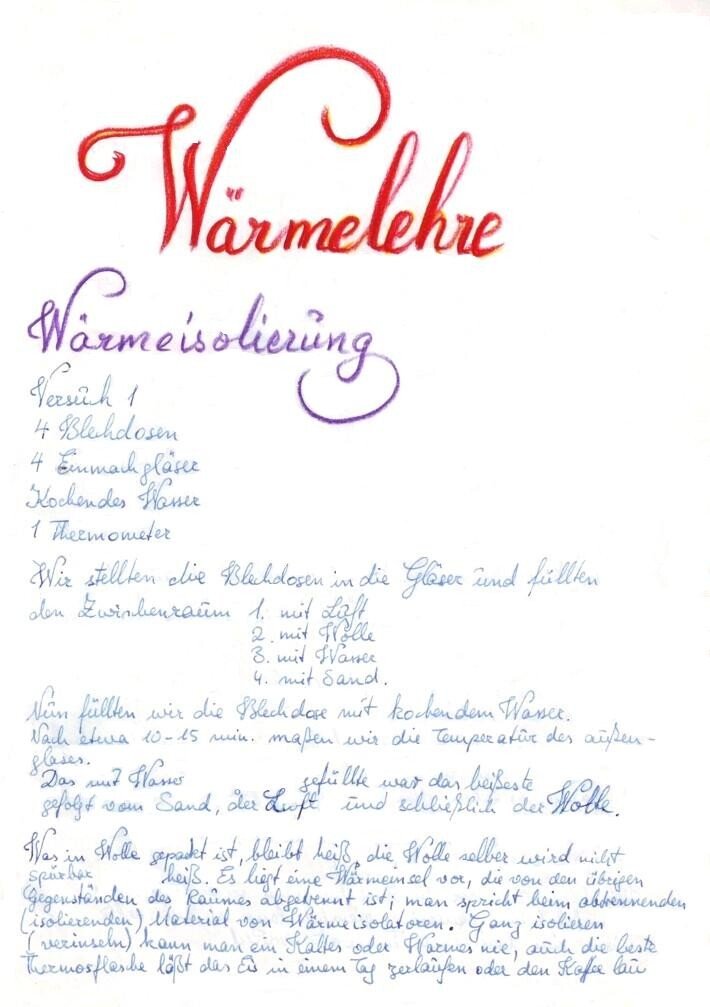 Wärmelehre
Wärmeisolierung
Versuch 1
4 Blechdosen
4 Einmachgläser
Kochendes Wasser
1 Thermometer
Wir stellten die Blechdosen in die Gläser und füllten
den Zwischenraum 1. mit Luft
2. mit Wolle
3. mit Wasser
4. mit Sand.
Nun füllten wir die Blechdose mit kochendem Wasser.
Nach etwa 10-15 min. maßen wir die Temperatur des außen-
glases.
Das mit Wasser gefüllte war das heißeste
gefolgt vom Sand, der Luft und schließlich der Wolle.
Was in Wolle gepackt ist, bleibt heiß, die Wolle selber wird nicht
spürbar heiß. Es liegt eine Wärmeinsel vor, die von den übrigen
Gegenständen des Raumes abgetrennt ist; man spricht beim abtrennenden
(isolierenden) Material von Wärmeisolatoren. Ganz isolieren
(verinseln) kann man ein Kaltes oder Warmes nie, auch die beste
Thermosflasche läßt das Eis in einem Tag zerlaufen oder den Kaffee lau